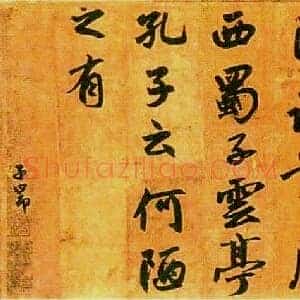 西蜀子雲亭
孔子云何陋
之有
子昂
Shufaziliao.COM